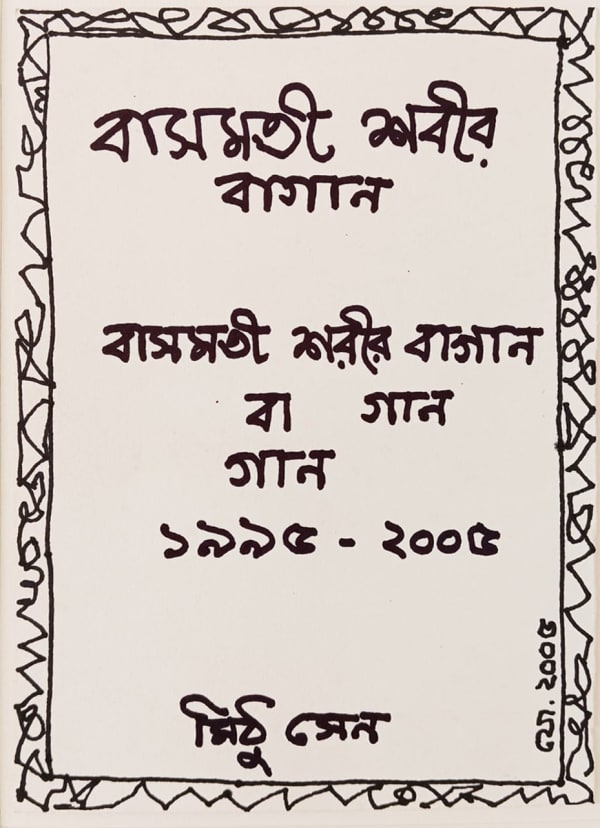 বাসমতী শরীরে
বাগান
বাসমতী শরীরে বাগান
বা গান
গান
১৯৯৫ - ২০০৫
মিঠু সেন
২০০৫